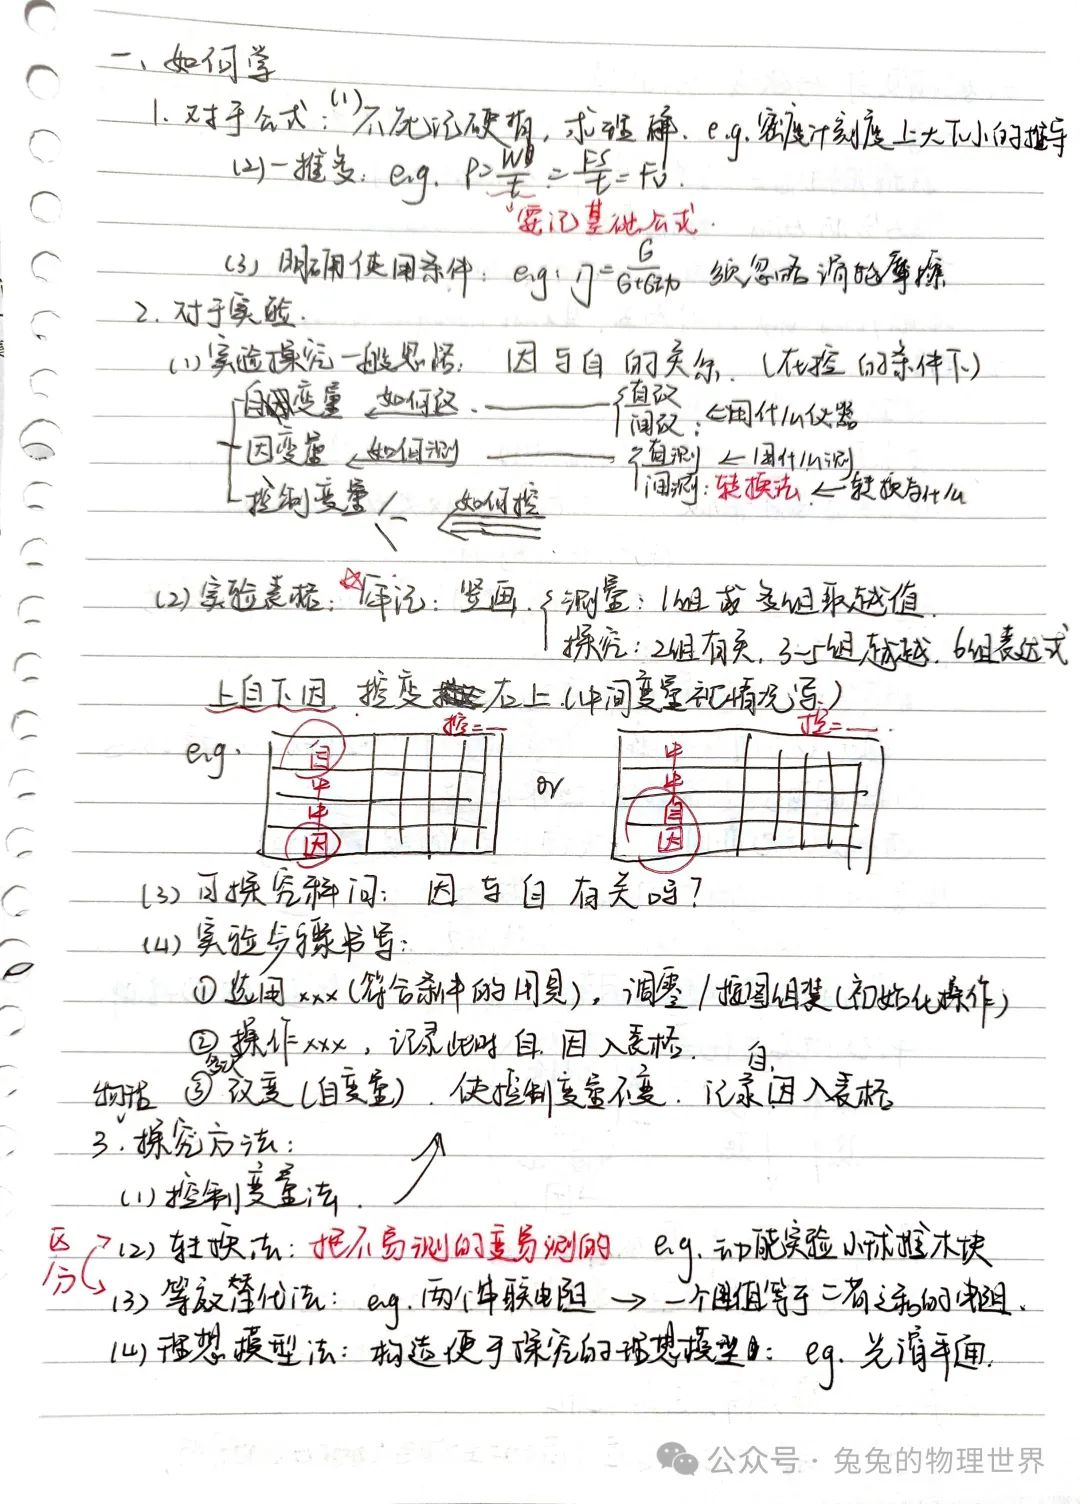 一、如何学
1. 对于公式：(1) 不死记硬背，求理解. e.g. 密度计刻度上大下小的推导
(2) 一推多：e.g. P=W/t=FS/t=Fv.
要记基础公式.
(3) 明确使用条件：e.g. η=G/(G+G动) 须忽略绳重摩擦
2. 对于实验.
(1) 实验探究一般思路： 因与自的关系. (在控的条件下)
自变量 ← 如何改 直改
间改：←用什么仪器
因变量 ← 如何测 直测 ← 用什么测
间测：转换法 ← 转换为什么
控制变量 ← 如何控
(2) 实验表格：☆牢记：竖画. 测量：1组或多组取平均值.
探究：2组有关，3-5组趋势，6组表达式
上自下因，控变右上.(中间变量视情况写)
控=— 控=—.
e.g. 自 中
中 中
or
中 自
因 因
(3) 可探究科问： 因与自有关吗？
(4) 实验步骤书写：
① 选用xxx(符合条件的用具)，调零/按图组装(初始化操作)
② 操作xxx，记录此时自.因入表格.
自.
③ 多次改变(自变量)，使控制变量不变. 记录因入表格
物法
3. 探究方法：
(1) 控制变量法.
区分
(2) 转换法：把不易测的变易测的 e.g. 动能实验小球推木块
(3) 等效替代法：e.g. 两个串联电阻 → 一个阻值等于二者之和的电阻.
(4) 理想模型法：构造便于探究的理想模型：eg. 光滑平面.
公众号·兔兔的物理世界